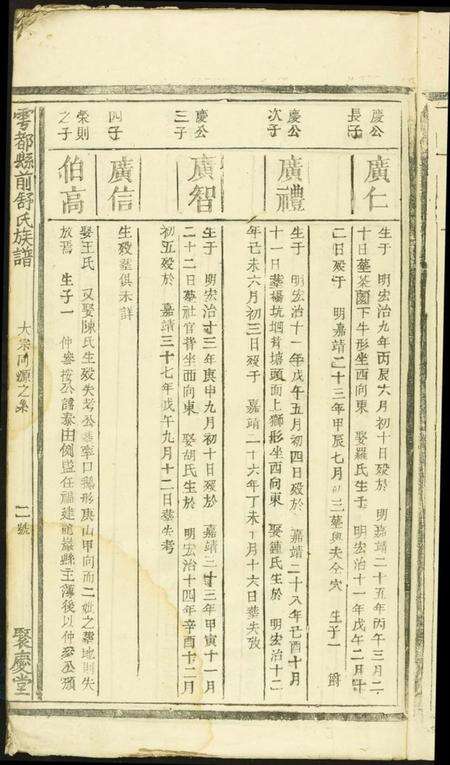 慶公
長子
廣仁
生于 明宏治九年丙辰六月初十日歿於 明嘉靖二十五年丙午三月二
十日葬茶園下牛形坐西向東 娶羅氏生于 明宏治十一年戊午二月十
二日歿于 明嘉靖二十三年甲辰七月 三葬與夫仝穴 生子一 爵
慶公
次子
廣禮
生于 明宏治十一年戊午五月初四日歿於 嘉靖二十八年己酉十月
十一日葬楊坑堌背塘頭面上獅形坐西向東 娶鍾氏生於 明宏治十二
年己未六月初三日歿于 嘉靖二十六年丁未十月十六日葬失攷
慶公
三子
廣智
生于 明宏治十三年庚申九月初十日歿於 嘉靖三十三年甲寅十一月
二十二日葬社官背坐西向東 娶胡氏生於 明宏治十四年辛酉十二月
初五歿於 嘉靖三十七年戊午九月十二日葬失考
四子
廣信
生歿葬俱未詳
榮則
之子
伯高
娶王氏 又娶陳氏生歿失考公葬 口鵝形庚山甲向而二妣之葬地則失
放焉 生子一 仲參按公譜泰由例監任福建龍巖縣主薄後以仲參公
雩都縣前舒氏族譜
大宗同源之系
二號
聚慶堂